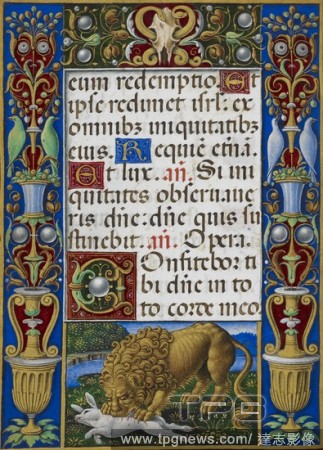 eum redemptio. Et
ipse redimet isrl: ex
omnibz iniquitatibz
eius. Requiē etnā.
Et lux. añ. Si ini
quitates observave
ris dn̄e: dn̄e quis su
stinebit. añ. Opera.
Confitebor ti
bi dn̄e in to
to corde meo
TPG
www.tpgnews.com/ 達志影像